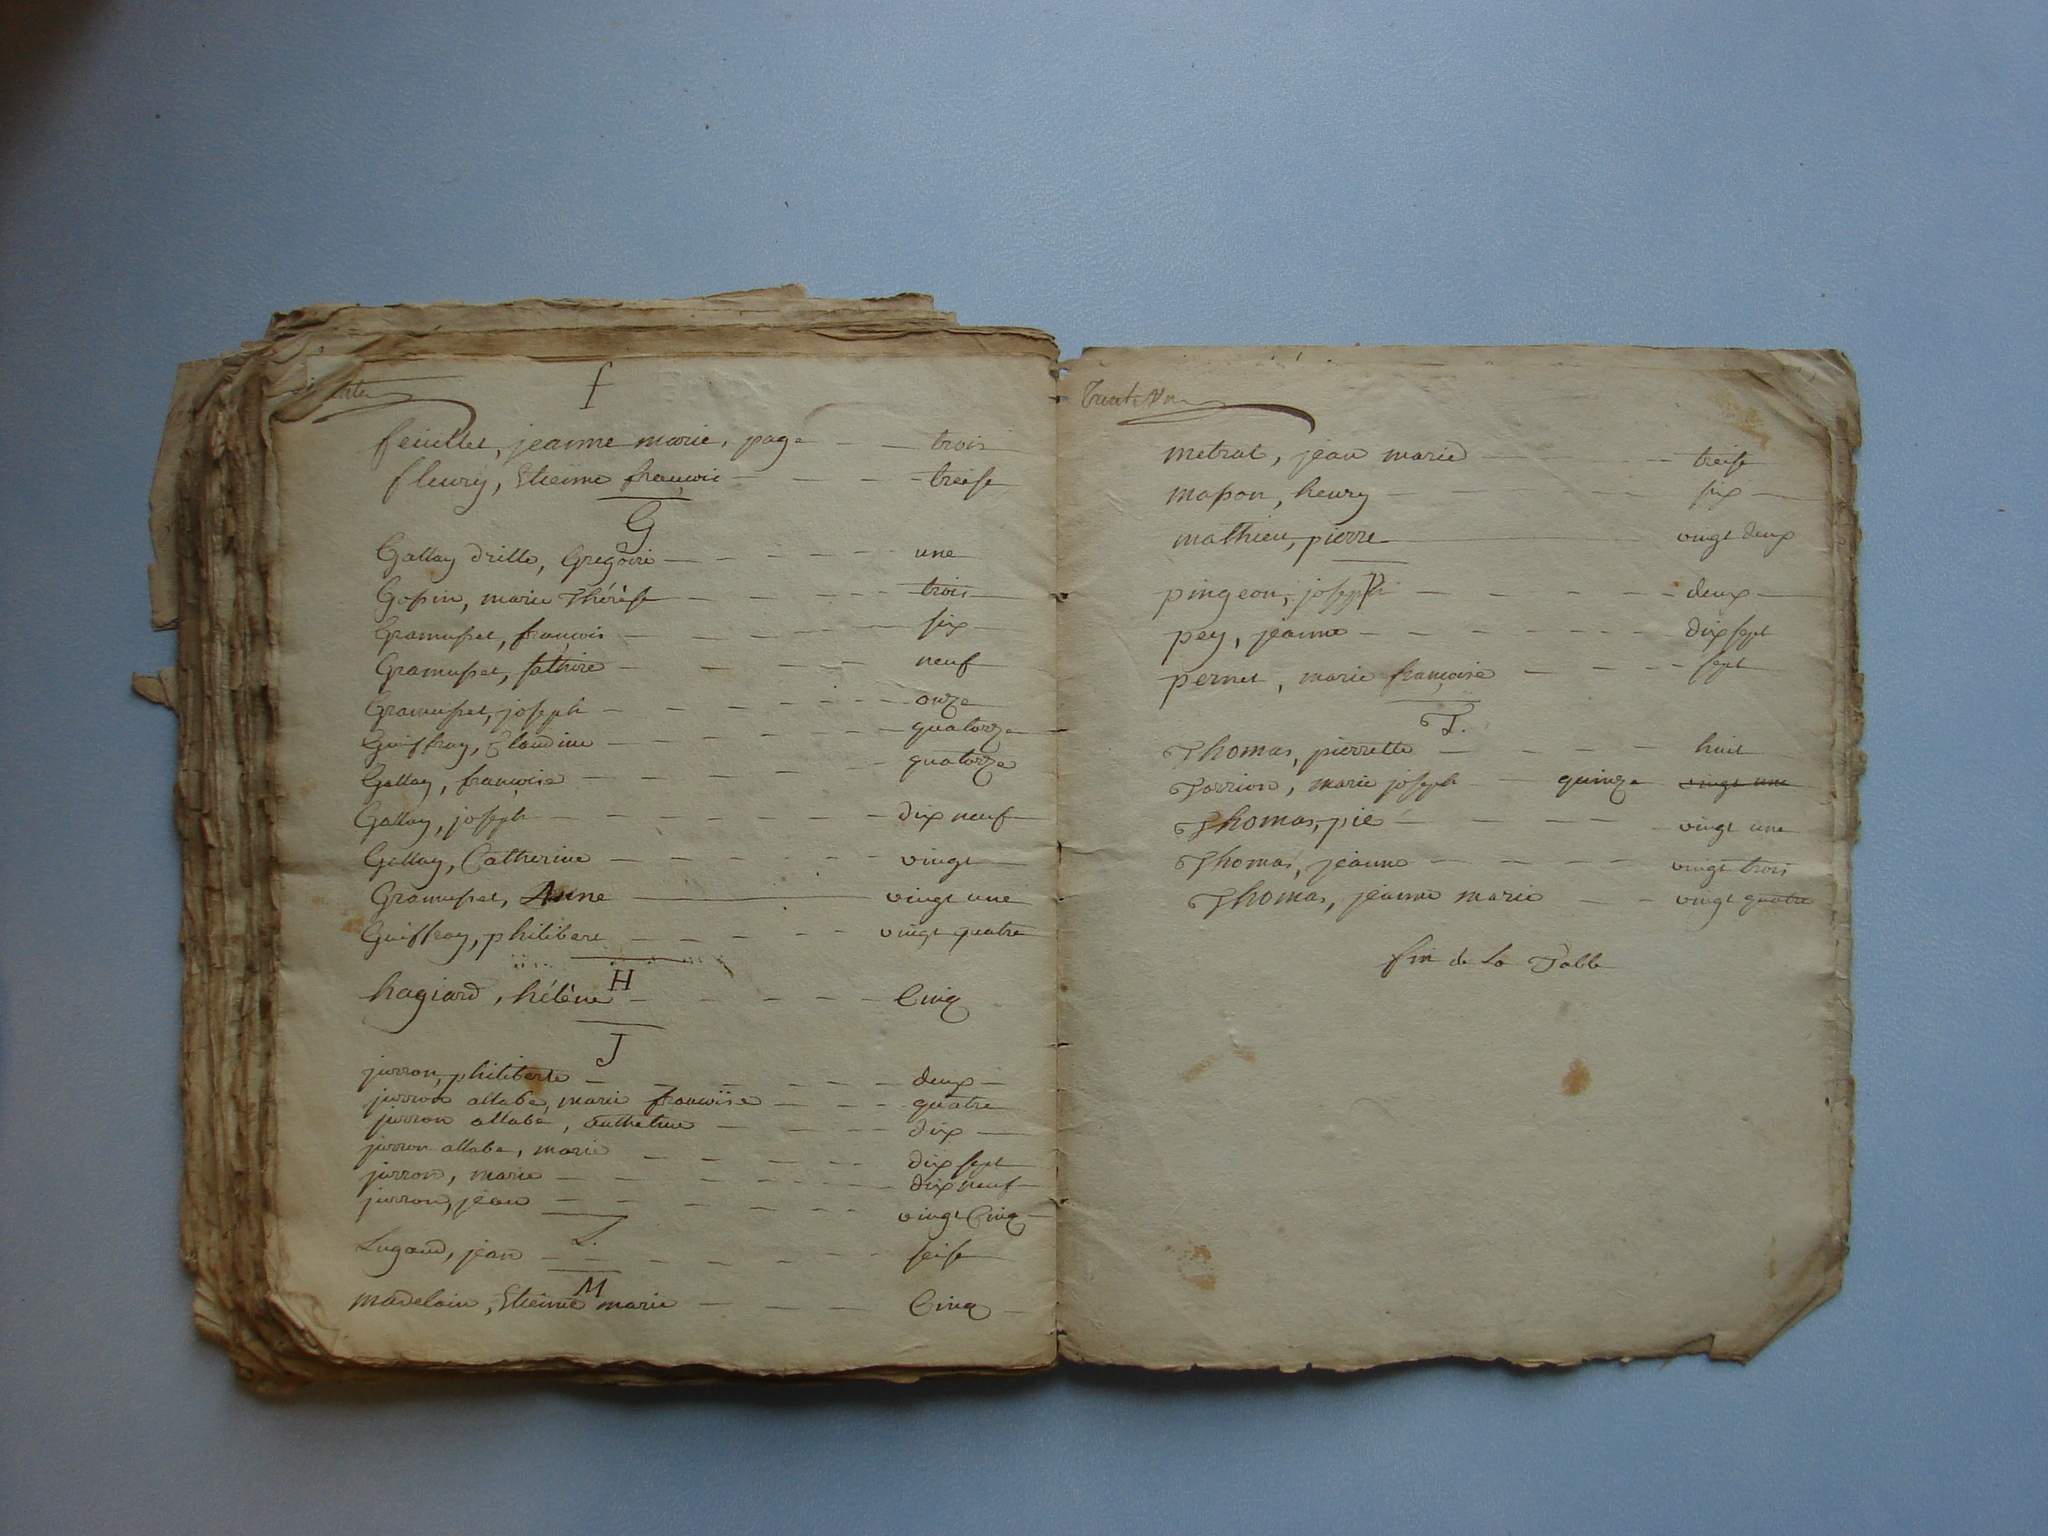 f
feuillet, jeanne marie, page trois
fleury, Etieinne françois treise
G
Gallay drille, Gregoire une
Gossin, marie Thérèse trois
Gramusset, françois six
Gramusset, neuf
Gramusset, joseph onze
Guiffray, Claudine quatorze
Gallay, françoise quatorze
Gallay, joseph dix neuf
Gallay, Catherine vingt
Gramusset, Anne vingt une
Guiffray, philibert vingt quatre
H
hagiard, hélène Cinq
J
jurron, philiberte deux
jurron allabe, marie françoise quatre
jurron allabe, dix
jurron allabe, marie dix sept
jurron, marie dix neuf
jurron, jean vingt Cinq
L.
Lugand, jean seise
M
madelain, Etieinne marie Cinq
Trente Une
metrat, jean marie treise
masson, henry six
mathieu, pierre vingt deux
P
pingeon, joseph deux
pey, jeanne dix sept
pernet, marie françoise sept
T.
Thomas, pierrette huit
Torrion, marie joseph quinze vingt une
Thomas, pie vingt une
Thomas, jeanne vingt trois
Thomas, jeanne marie vingt quatre
fin de La Table